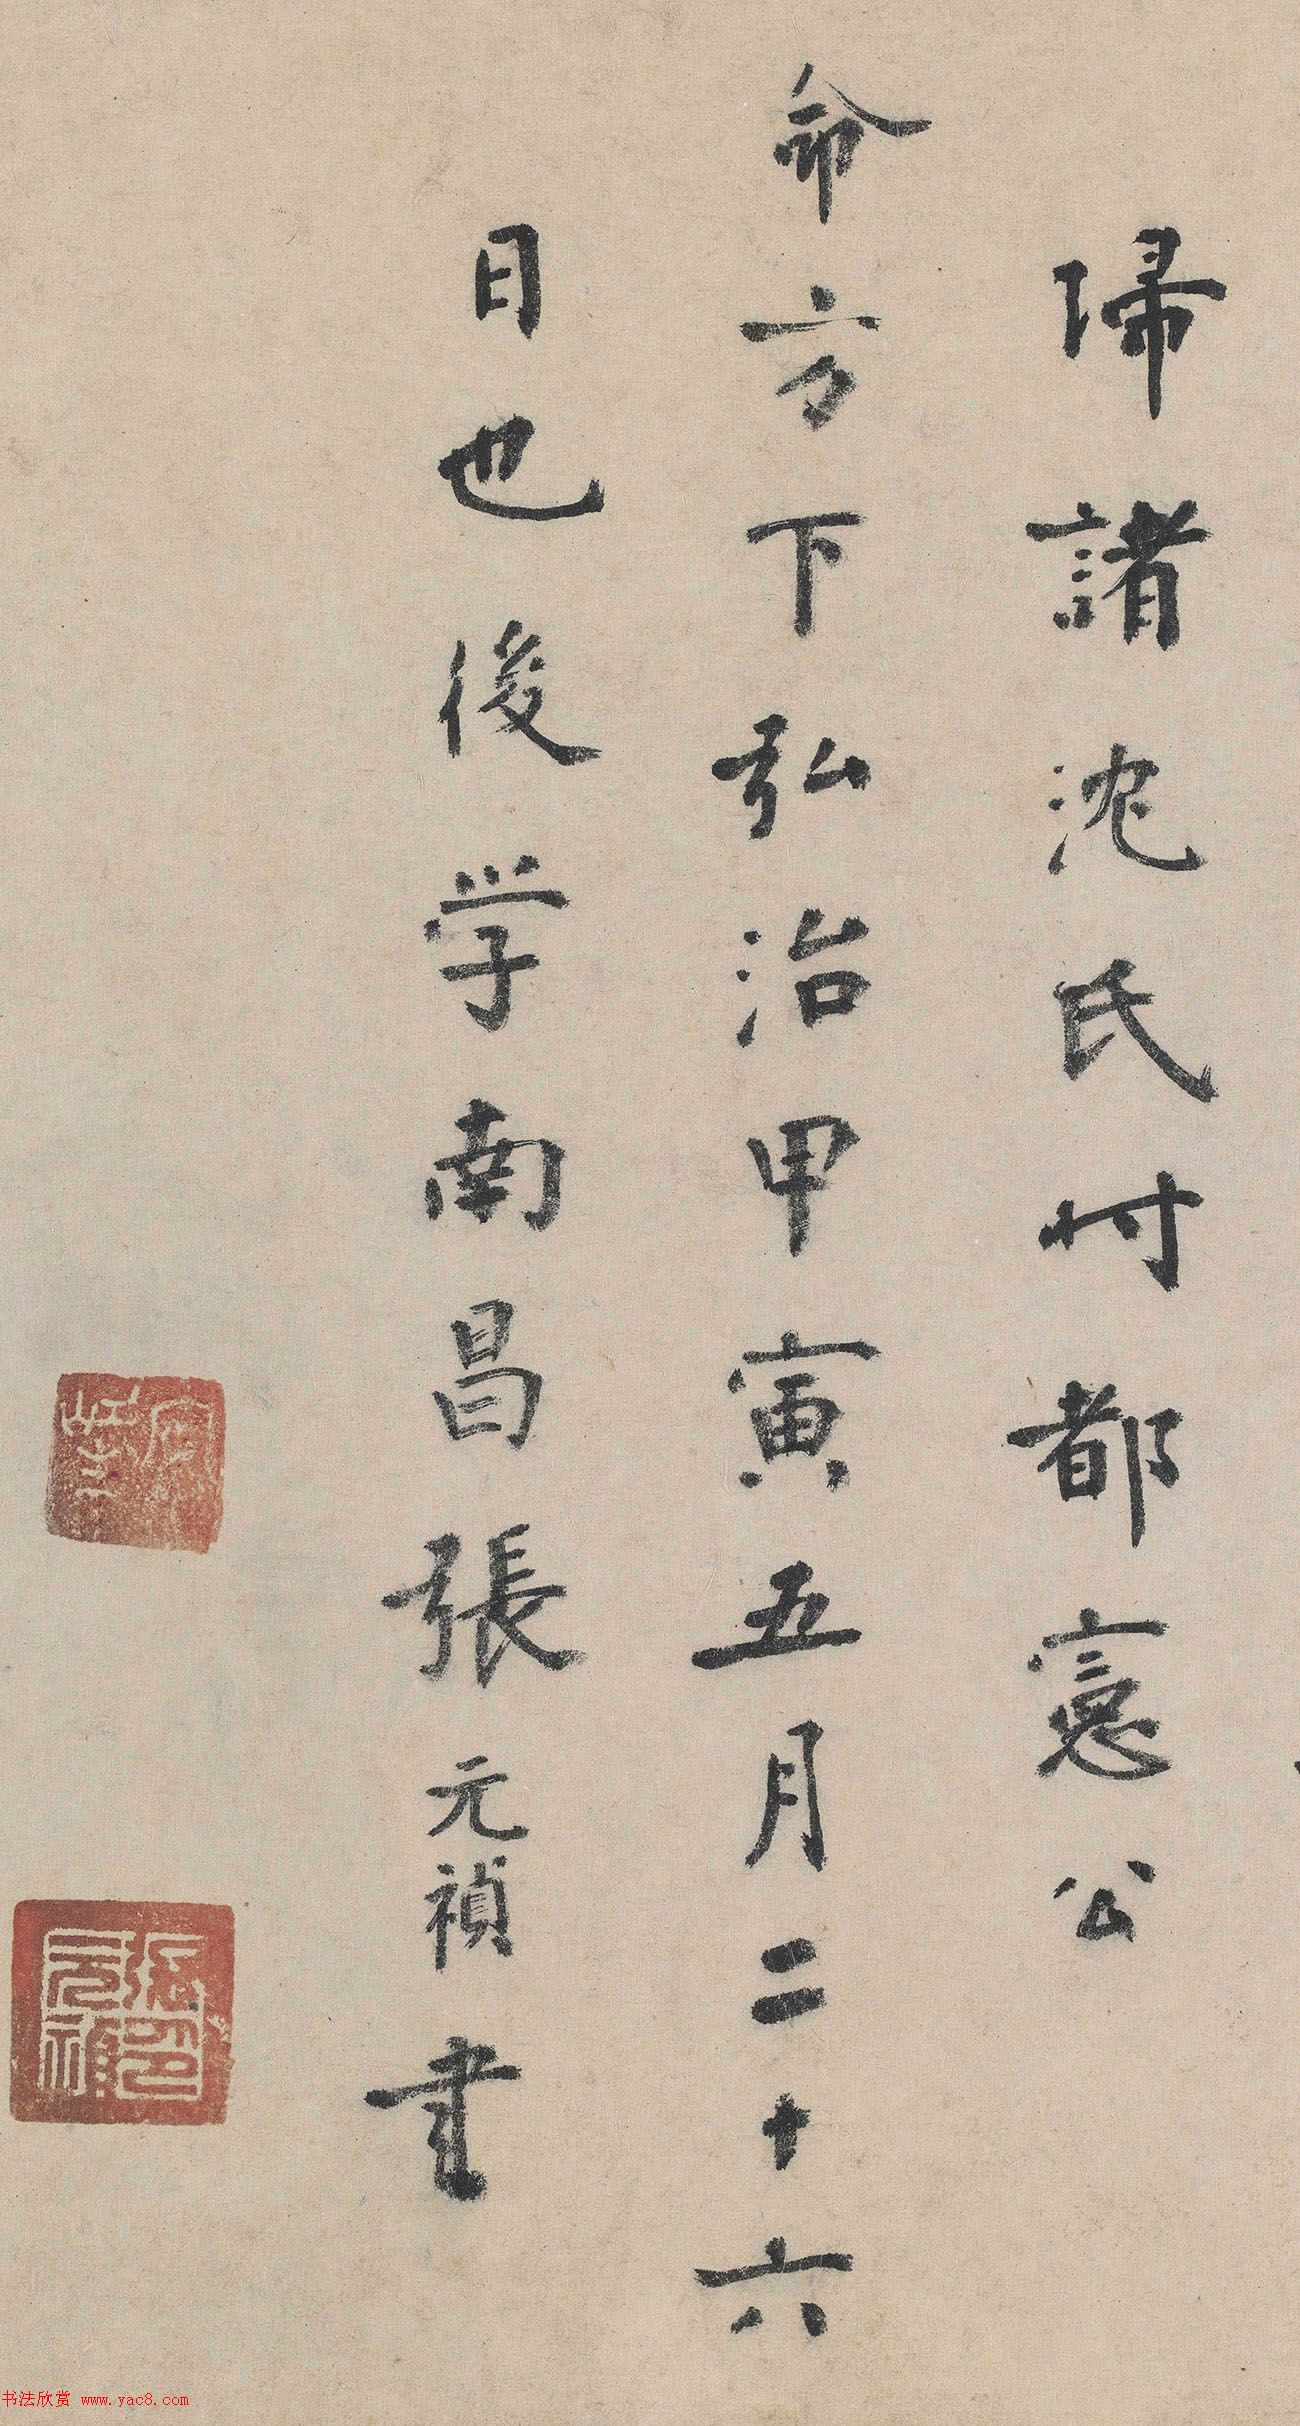 歸諸沈氏时都憲公
命方下弘治甲寅五月二十六
日也後学南昌張元禎書
張元禎印
书法欣赏 www.yac8.com